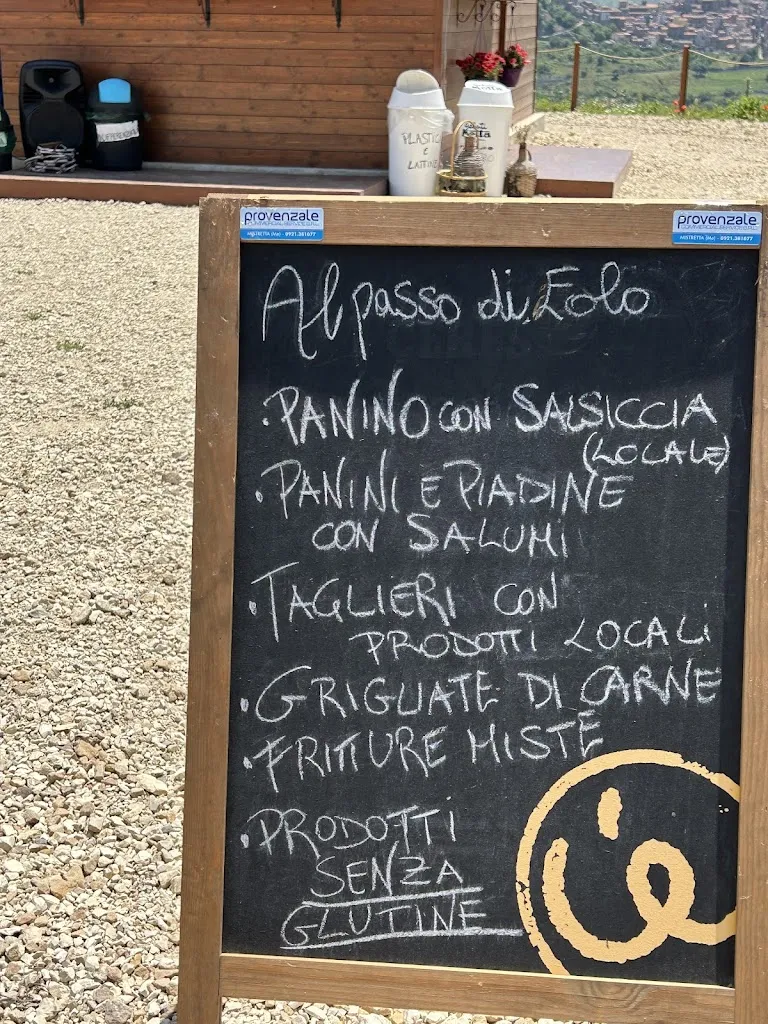 PLASTICA
E
LATTINE
provenzale
MISTRETTA (Me) - 0921.381677
provenzale
MISTRETTA (Me) - 0921.381677
Al passo di Eolo
• PANINO CON SALSICCIA
(LOCALE)
• PANINI E PIADINE
CON SALUMI
• TAGLIERI CON
PRODOTTI LOCALI
• GRIGLIATE DI CARNE
• FRITTURE MISTE
• PRODOTTI
SENZA
GLUTINE